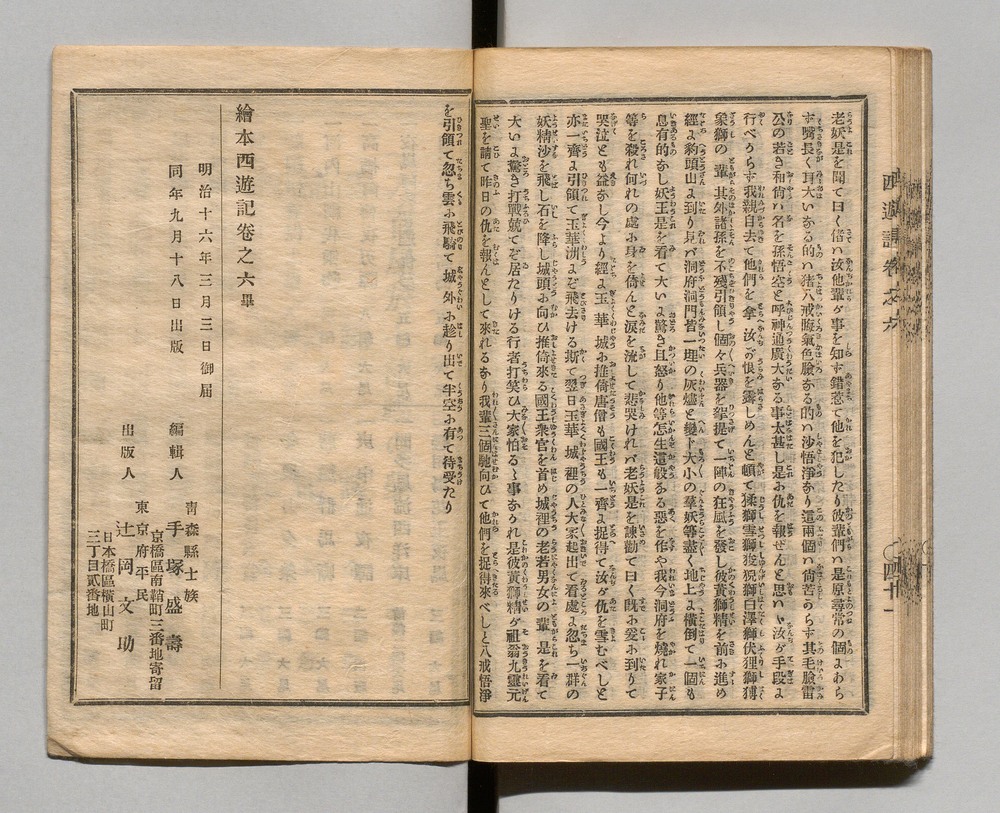 老妖是を聞て曰く偖ハ汝他輩が事を知ず錯惹て他を犯したり彼輩們ハ是原尋常の個にあら
ず嘴長く耳大いなる的ハ猪八戒晦氣色臉なる的ハ沙悟淨なり這兩個ハ尚苦からず其毛臉雷
公の若き和尚ハ名を孫悟空と呼神通廣大なる事太甚し是お仇を報せんと思ハヾ汝が手段よ
行べからず我親自去て他們を拿へ汝が恨を露しめんと頓て猱獅雪獅狻猊獅白澤獅伏狸獅摶
象獅の輩其外諸孫を不殘引領し個々兵器を挈提て一陣の狂風を發し彼黃獅精を前お進め
經よ豹頭山よ到り見バ洞府洞門皆一堆の灰燼と變ド大小の羣妖等盡く地上よ横倒て一個も
息有的なし妖王是を看て大いよ驚き且怒り他等怎生這般なる惡を作や我今洞府を燒れ家子
等を殺れ何れの處お身を倚んと涙を流して悲哭けれバ老妖是を諫勸て曰く既お爰お到りて
哭泣とも益なし今より經よ玉華城お推倚唐僧も國王も一齊よ捉得て汝が仇を雪むべしと
亦一齊よ引領て玉華洲よぞ飛去ける斯て翌日玉華城裡の人大家起出て看處よ忽ち一群の
妖精沙を飛し石を降し城頭お向ひ推倚來る國王衆官を首め城裡の老若男女の輩是を看て
大いよ驚き打戰兢てぞ居たりける行者打笑ひ大家怕るゝ事なかれ是彼黃獅精が祖翁九靈元
聖を請て昨日の仇を報んとして來れるなり我輩三個馳向ひて他們を捉得來べしと八戒悟淨
を引領て忽ち雲お飛騎て城外お趁り出て半空お有て待受たり
繪本西遊記卷之六畢
明治十六年三月三日御届
同年九月十八日出版
編輯人
青森縣士族
手塚盛壽
京橋區南鞘町三番地寄留
出版人
東京府平民
辻岡文助
日本橋區横山町
三丁目貳番地
西遊記卷之六
四十一